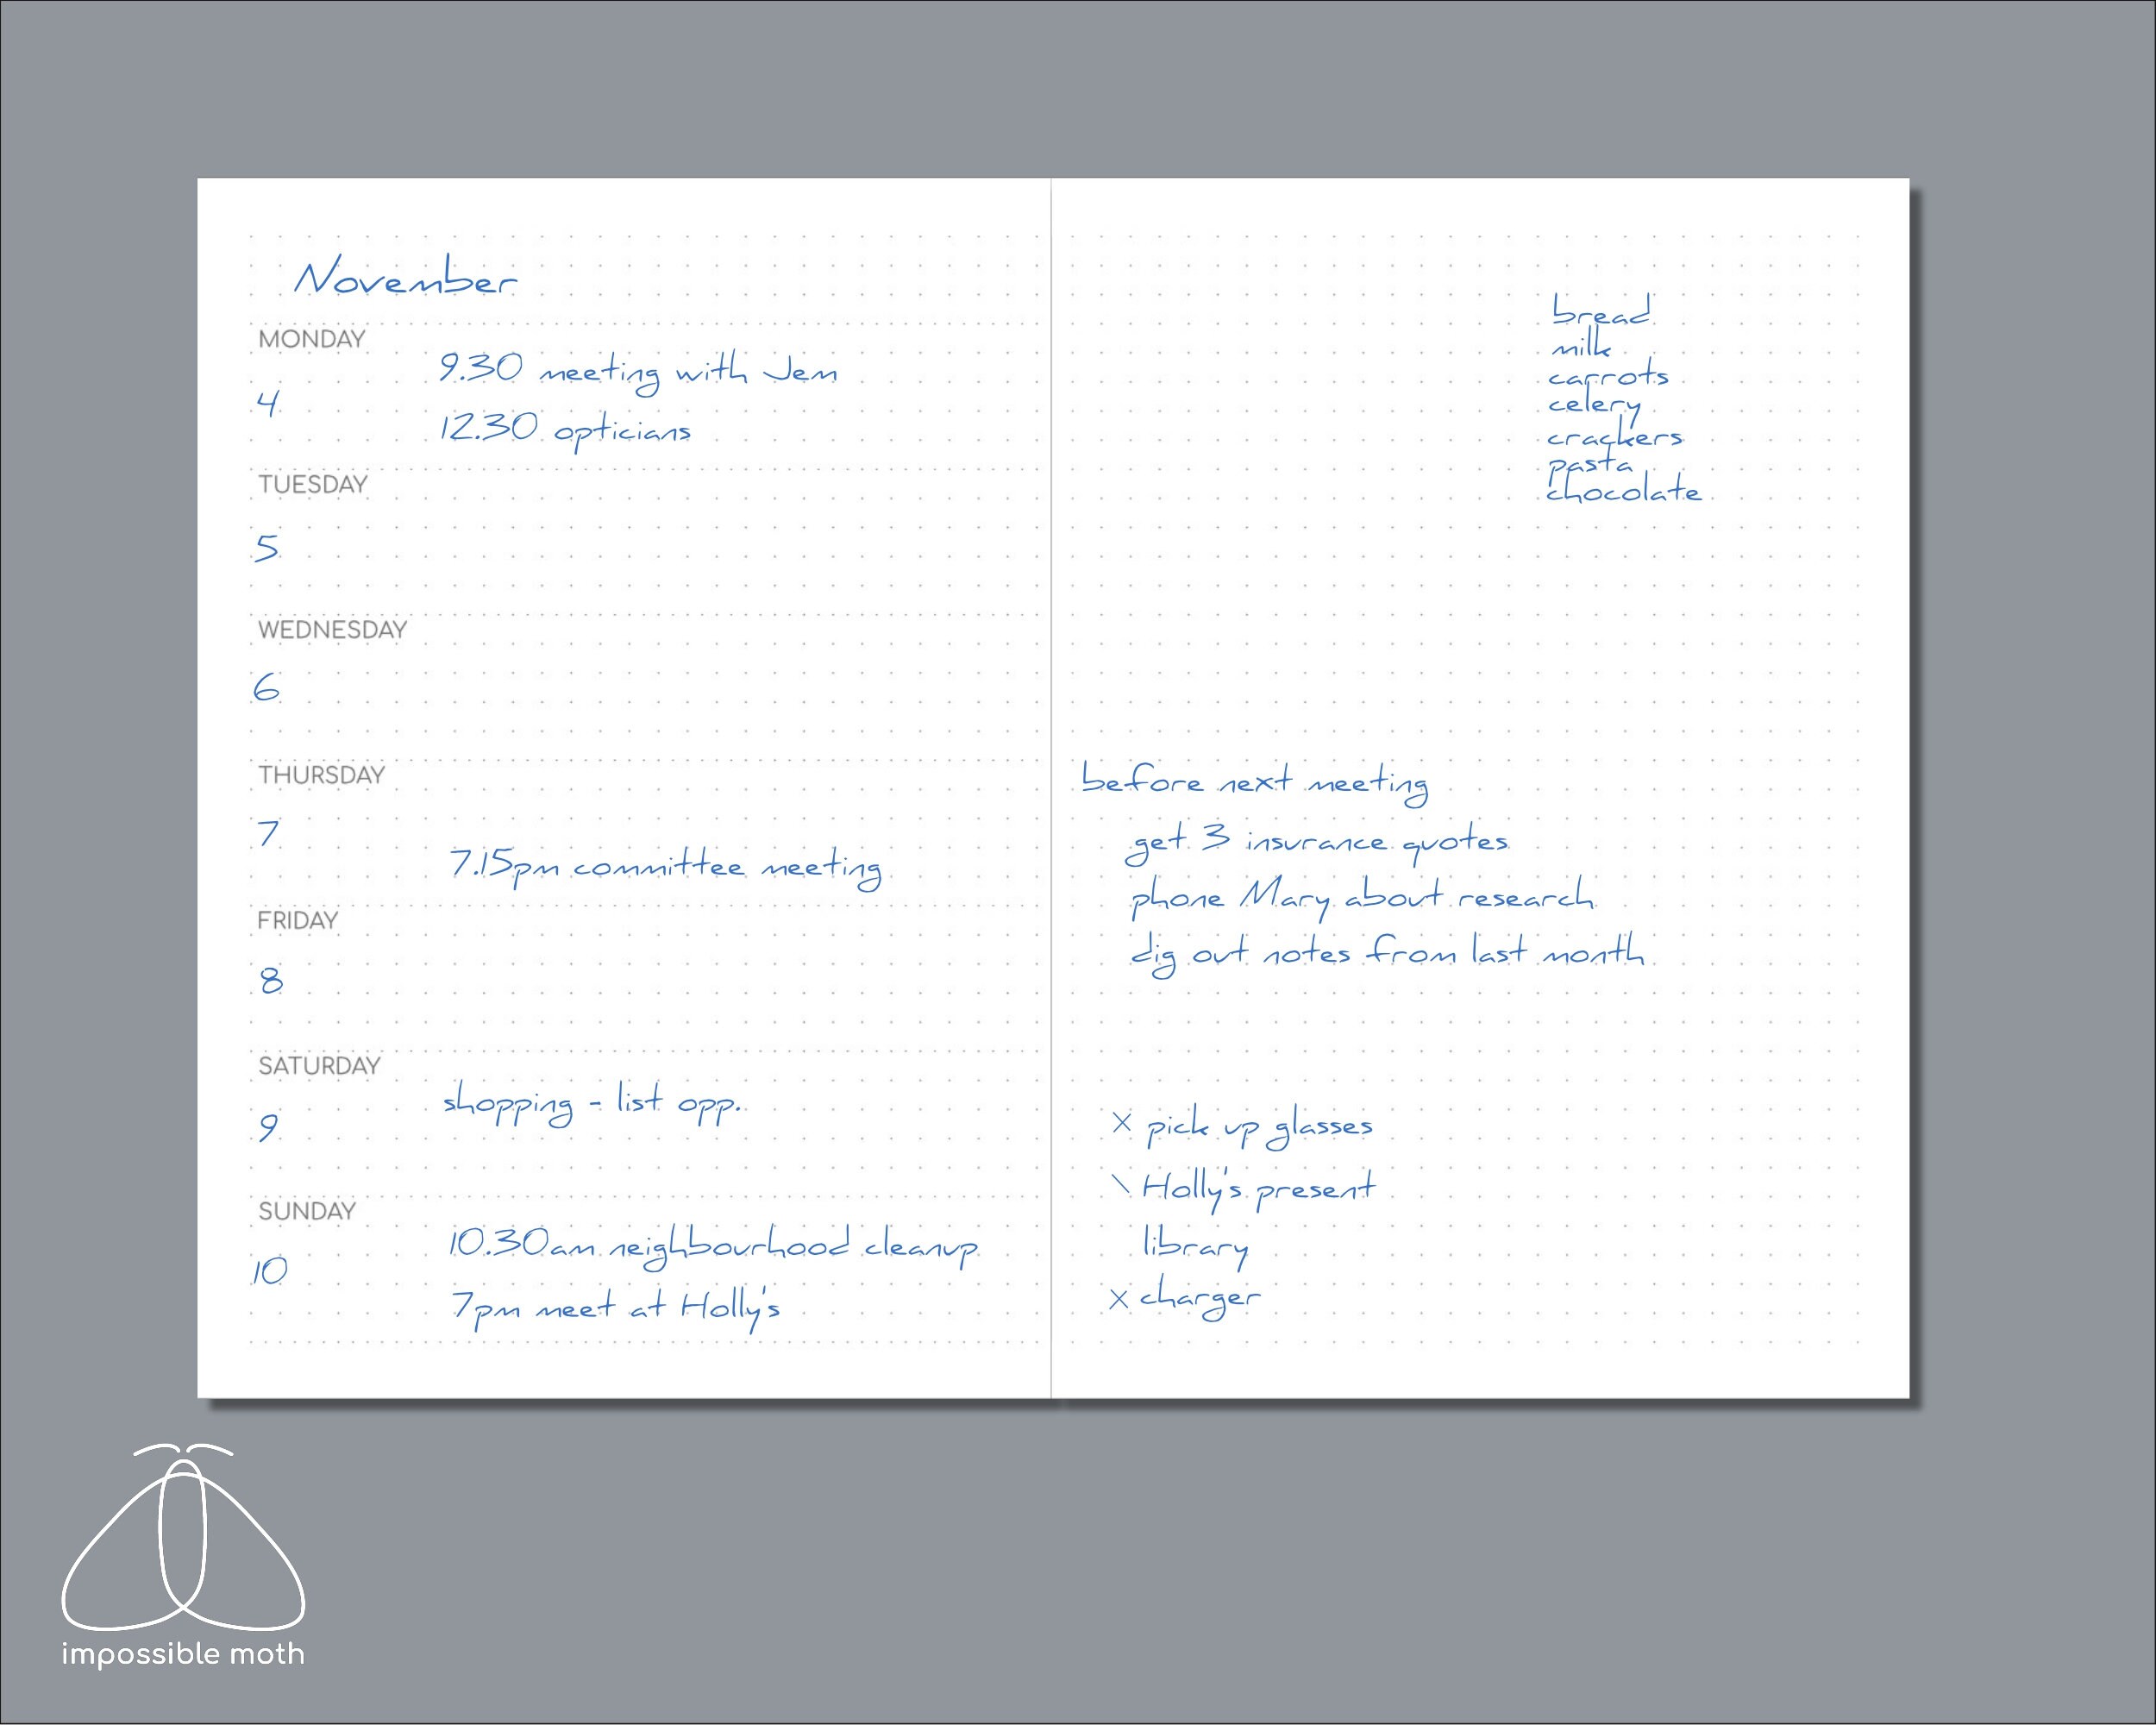 November
MONDAY
4
9.30 meeting with Jem
12.30 opticians
TUESDAY
5
WEDNESDAY
6
THURSDAY
7
7.15pm committee meeting
FRIDAY
8
SATURDAY
9
shopping - list opp.
SUNDAY
10
10.30am neighbourhood cleanup
7pm meet at Holly's
bread
milk
carrots
celery
crackers
pasta
chocolate
before next meeting
get 3 insurance quotes
phone Mary about research
dig out notes from last month
x pick up glasses
\ Holly's present
library
x charger
impossible moth